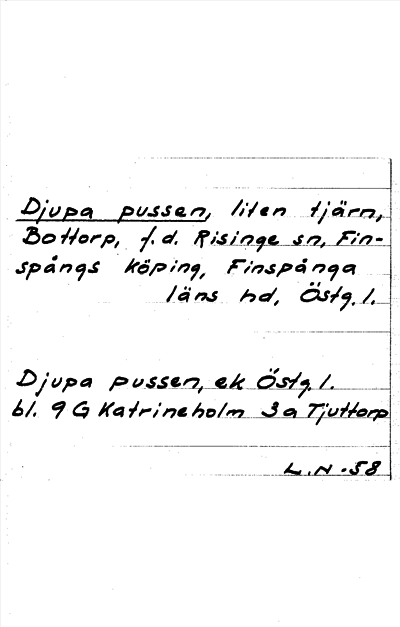 Djupa pussen, liten tjärn,
Bottorp, f.d. Risinge sn, Fin-
spångs köping, Finspånga
läns hd, Östg. l.
Djupa pussen, ek Östg. l.
bl. 9 G Katrineholm 3a Tjuttorp
L.N -58